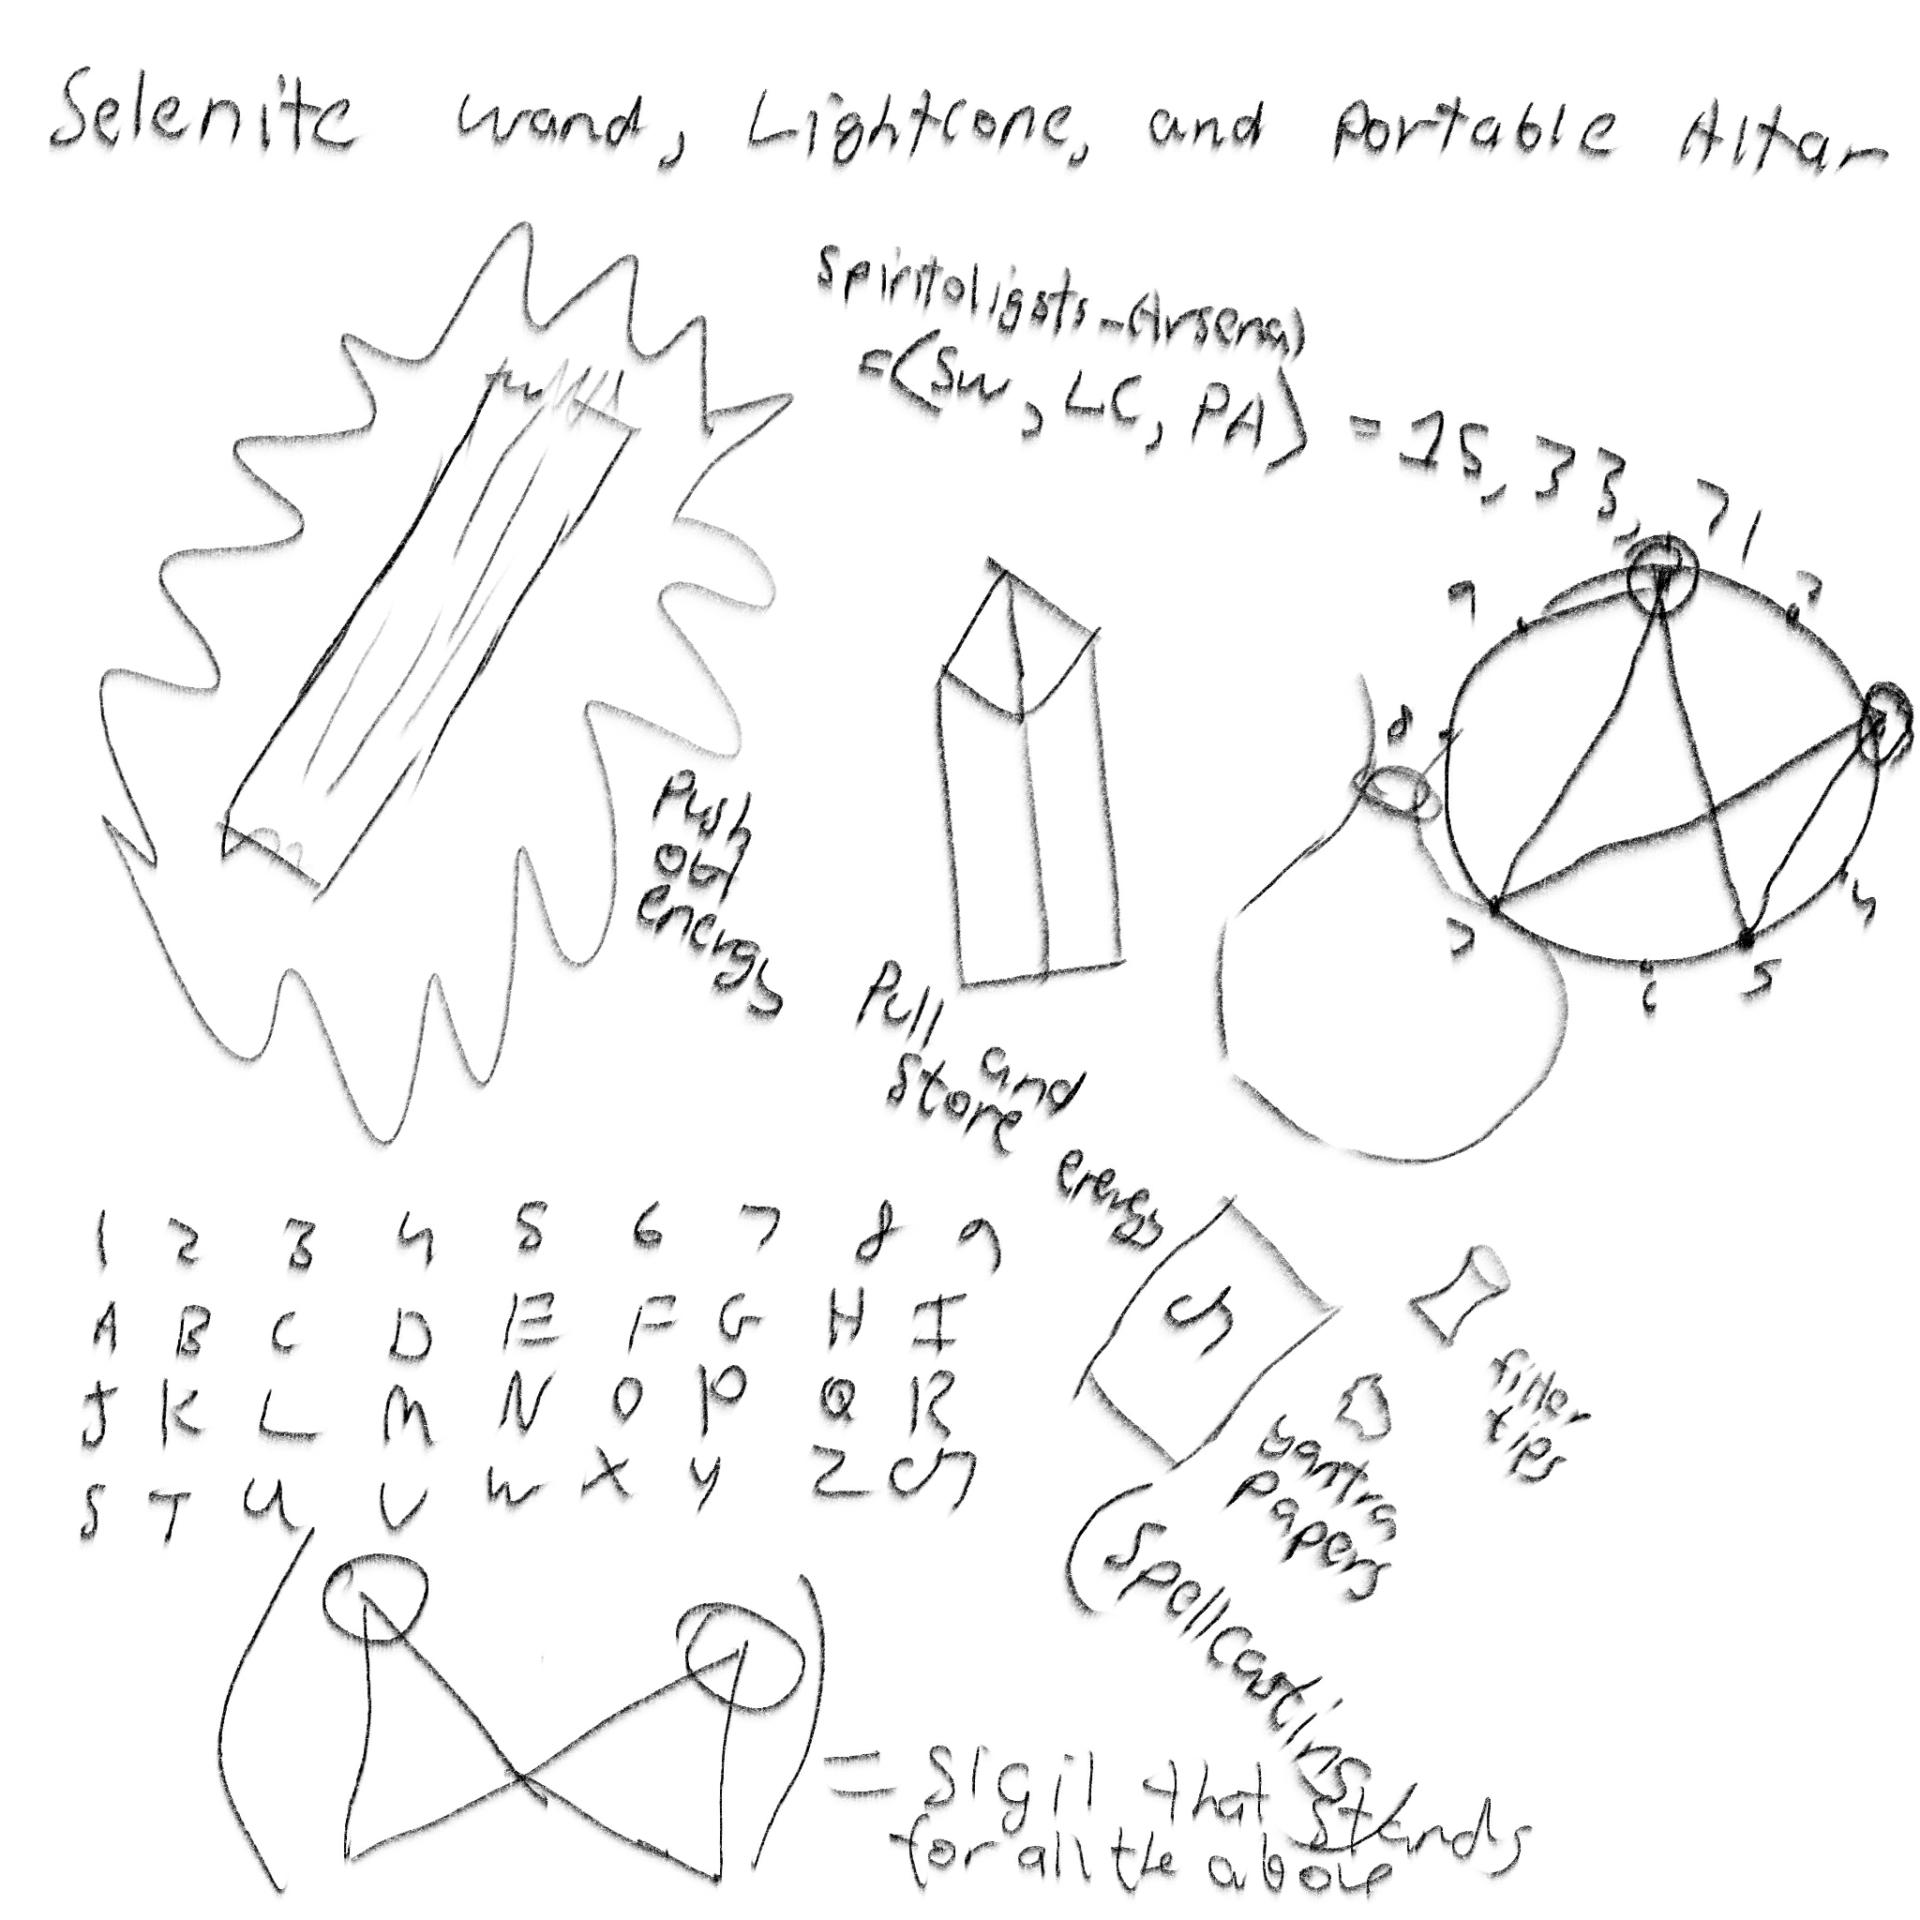 Selenite wand, Lightcone, and Portable Altar
Spiritoligsts-Arsenal
=(SW, LC, PA) = 15, 33, 71
9 2
8
7 6 5 4
Push
out
energy
Pull and
store
energy
1 2 3 4 5 6 7 8 9
A B C D E F G H I
J K L M N O P Q R
S T U V W X Y Z
filter
tips
yantra
papers
(Spellcasting
= Sigil that stands
for all the above